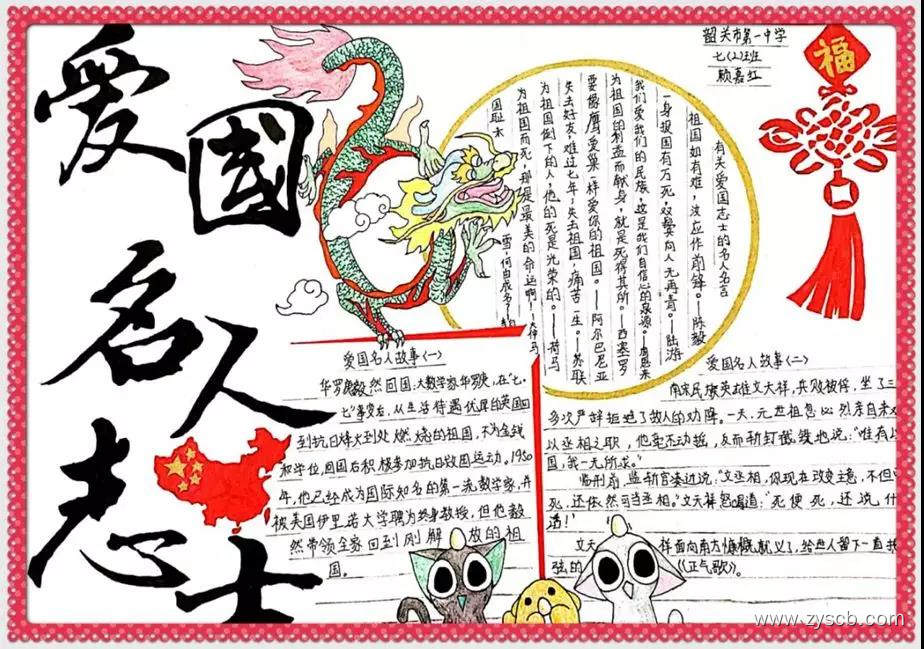 爱国名人志士
韶关市第一中学
七(2)班
顾嘉红
福
有关爱国志士的名人名言
祖国如有难,汝应作前锋。——陈毅
一身报国有万死,双鬓向人无再青。——陆游
我们爱我们的民族,这是我们自信心的泉源。——周恩来
为祖国的利益而献身,就是死得其所。——西塞罗
要像鹰爱巢一样爱你的祖国。——阿尔巴尼亚
失去好友,难过七年;失去祖国,痛苦一生。——苏联
为祖国倒下的人,他的死是光荣的。——荷马
为祖国而死,那是最美的命运啊!——大仲马
国耻未雪,何由成名?——
爱国名人故事(一)
华罗庚毅然回国:大数学家华罗庚,在“七·
七”事变后,从生活待遇优厚的英国回
到抗日烽火到处燃烧的祖国,不为金钱
和学位,回国后积极参加抗日救国运动。1950
年,他已经成为国际知名的第一流数学家,并
被美国伊里诺大学聘为终身教授,但他毅
然带领全家回到刚解放的祖
国。
爱国名人故事(二)
南宋民族英雄文天祥,兵败被俘,坐了三
多次严辞拒绝了敌人的劝降。一天,元世祖忽必烈亲自来
以丞相之职,他毫不动摇,反而斩钉截铁地说:“唯有以
国,我一无所求。”
临刑前,监斩官凑近说,“文丞相,你现在改变主意,不但
死,还依然可当丞相。”文天祥怒喝道:“死便死,还说什
道!”
文天祥面向南方慷慨就义了,给世人留下一直
弦的《正气歌》。
www.zyscb.com